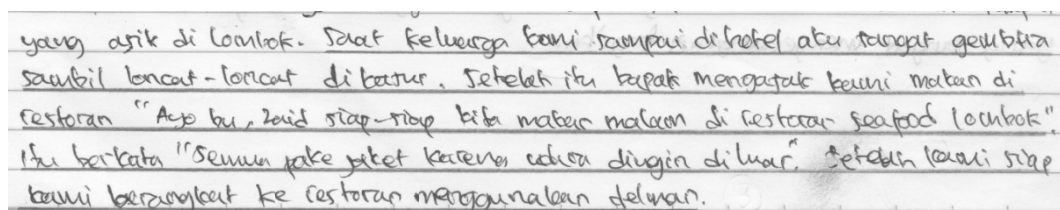 yang asik di Lombok. Saat keluarga kami sampai di hotel aku sangat gembira
sambil loncat-loncat di kasur. Setelah itu bapak mengajak kami makan di
restoran "Ayo bu, Zaid siap-siap kita makan malam di restoran seafood lombok"
itu berkata "Semua pake jaket karena udara dingin diluar". Setelah kami siap
kami berangkat ke restoran menggunakan delman.